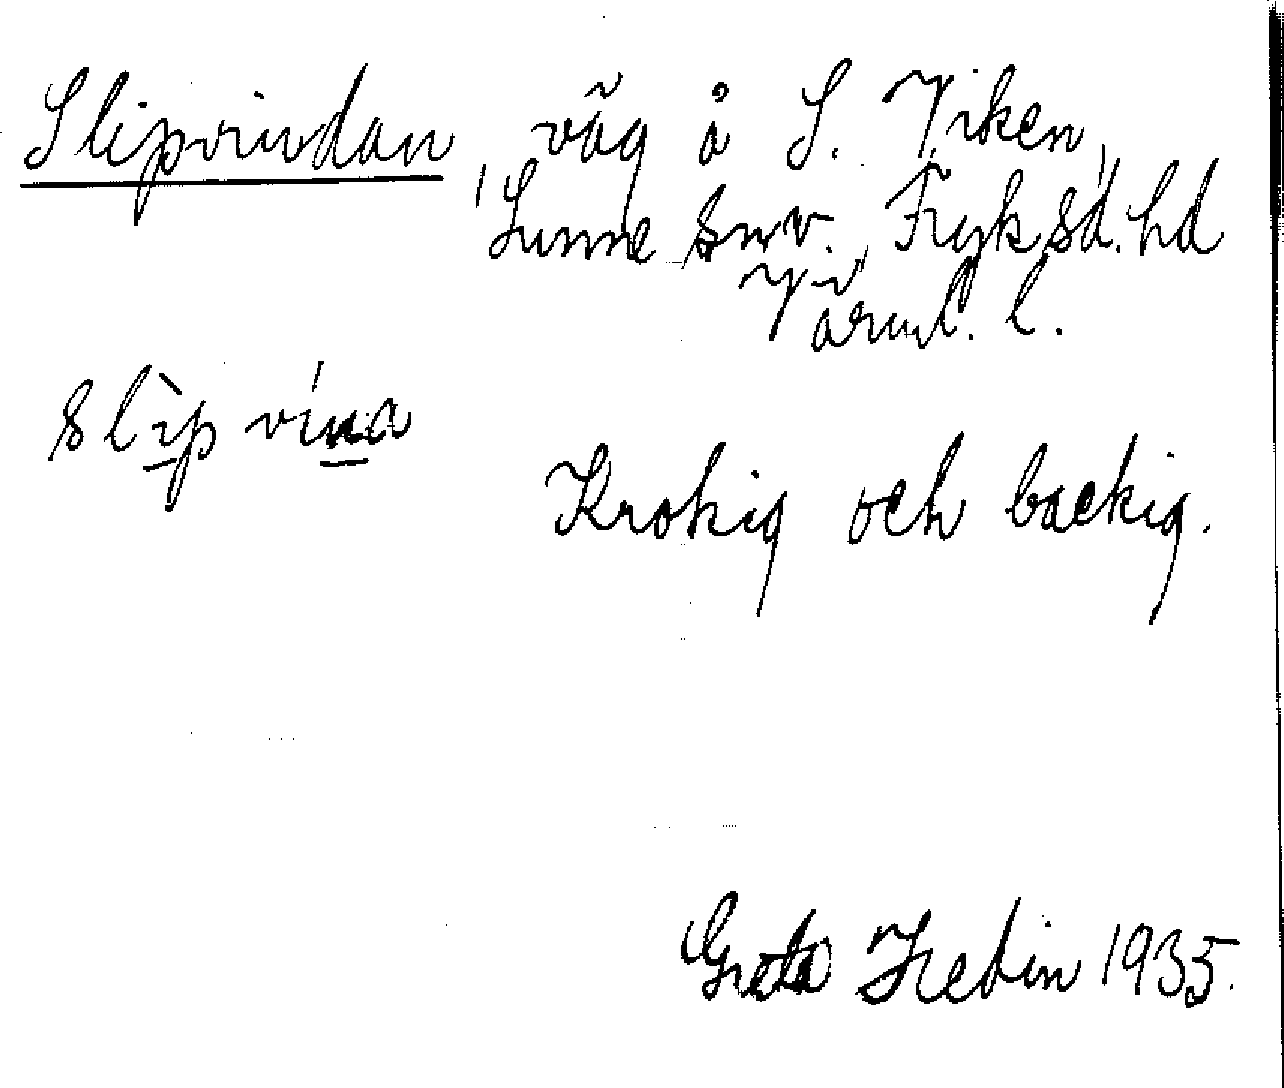 Slipvindan, väg å S. Viken,
Sunne snv. Fryksd. hd
Värml. l.
slìp vína
Krokig och backig.
Greta Hedin 1935.